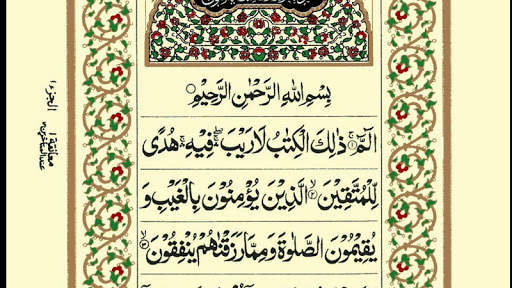 بِسْمِ اللهِ الرَّحْمٰنِ الرَّحِيْمِ ○
الٓمّٓ ۚ﴿۱﴾ ذٰلِكَ الْكِتٰبُ لَا رَيْبَ ۛۖ فِيْهِ ۛۚ هُدًى
لِّلْمُتَّقِيْنَ ۙ﴿۲﴾ الَّذِيْنَ يُؤْمِنُوْنَ بِالْغَيْبِ وَ
يُقِيْمُوْنَ الصَّلٰوةَ وَمِمَّا رَزَقْنٰهُمْ يُنْفِقُوْنَ ۙ﴿۳﴾
الجزء ١
معانقة ١
عند المتأخرين